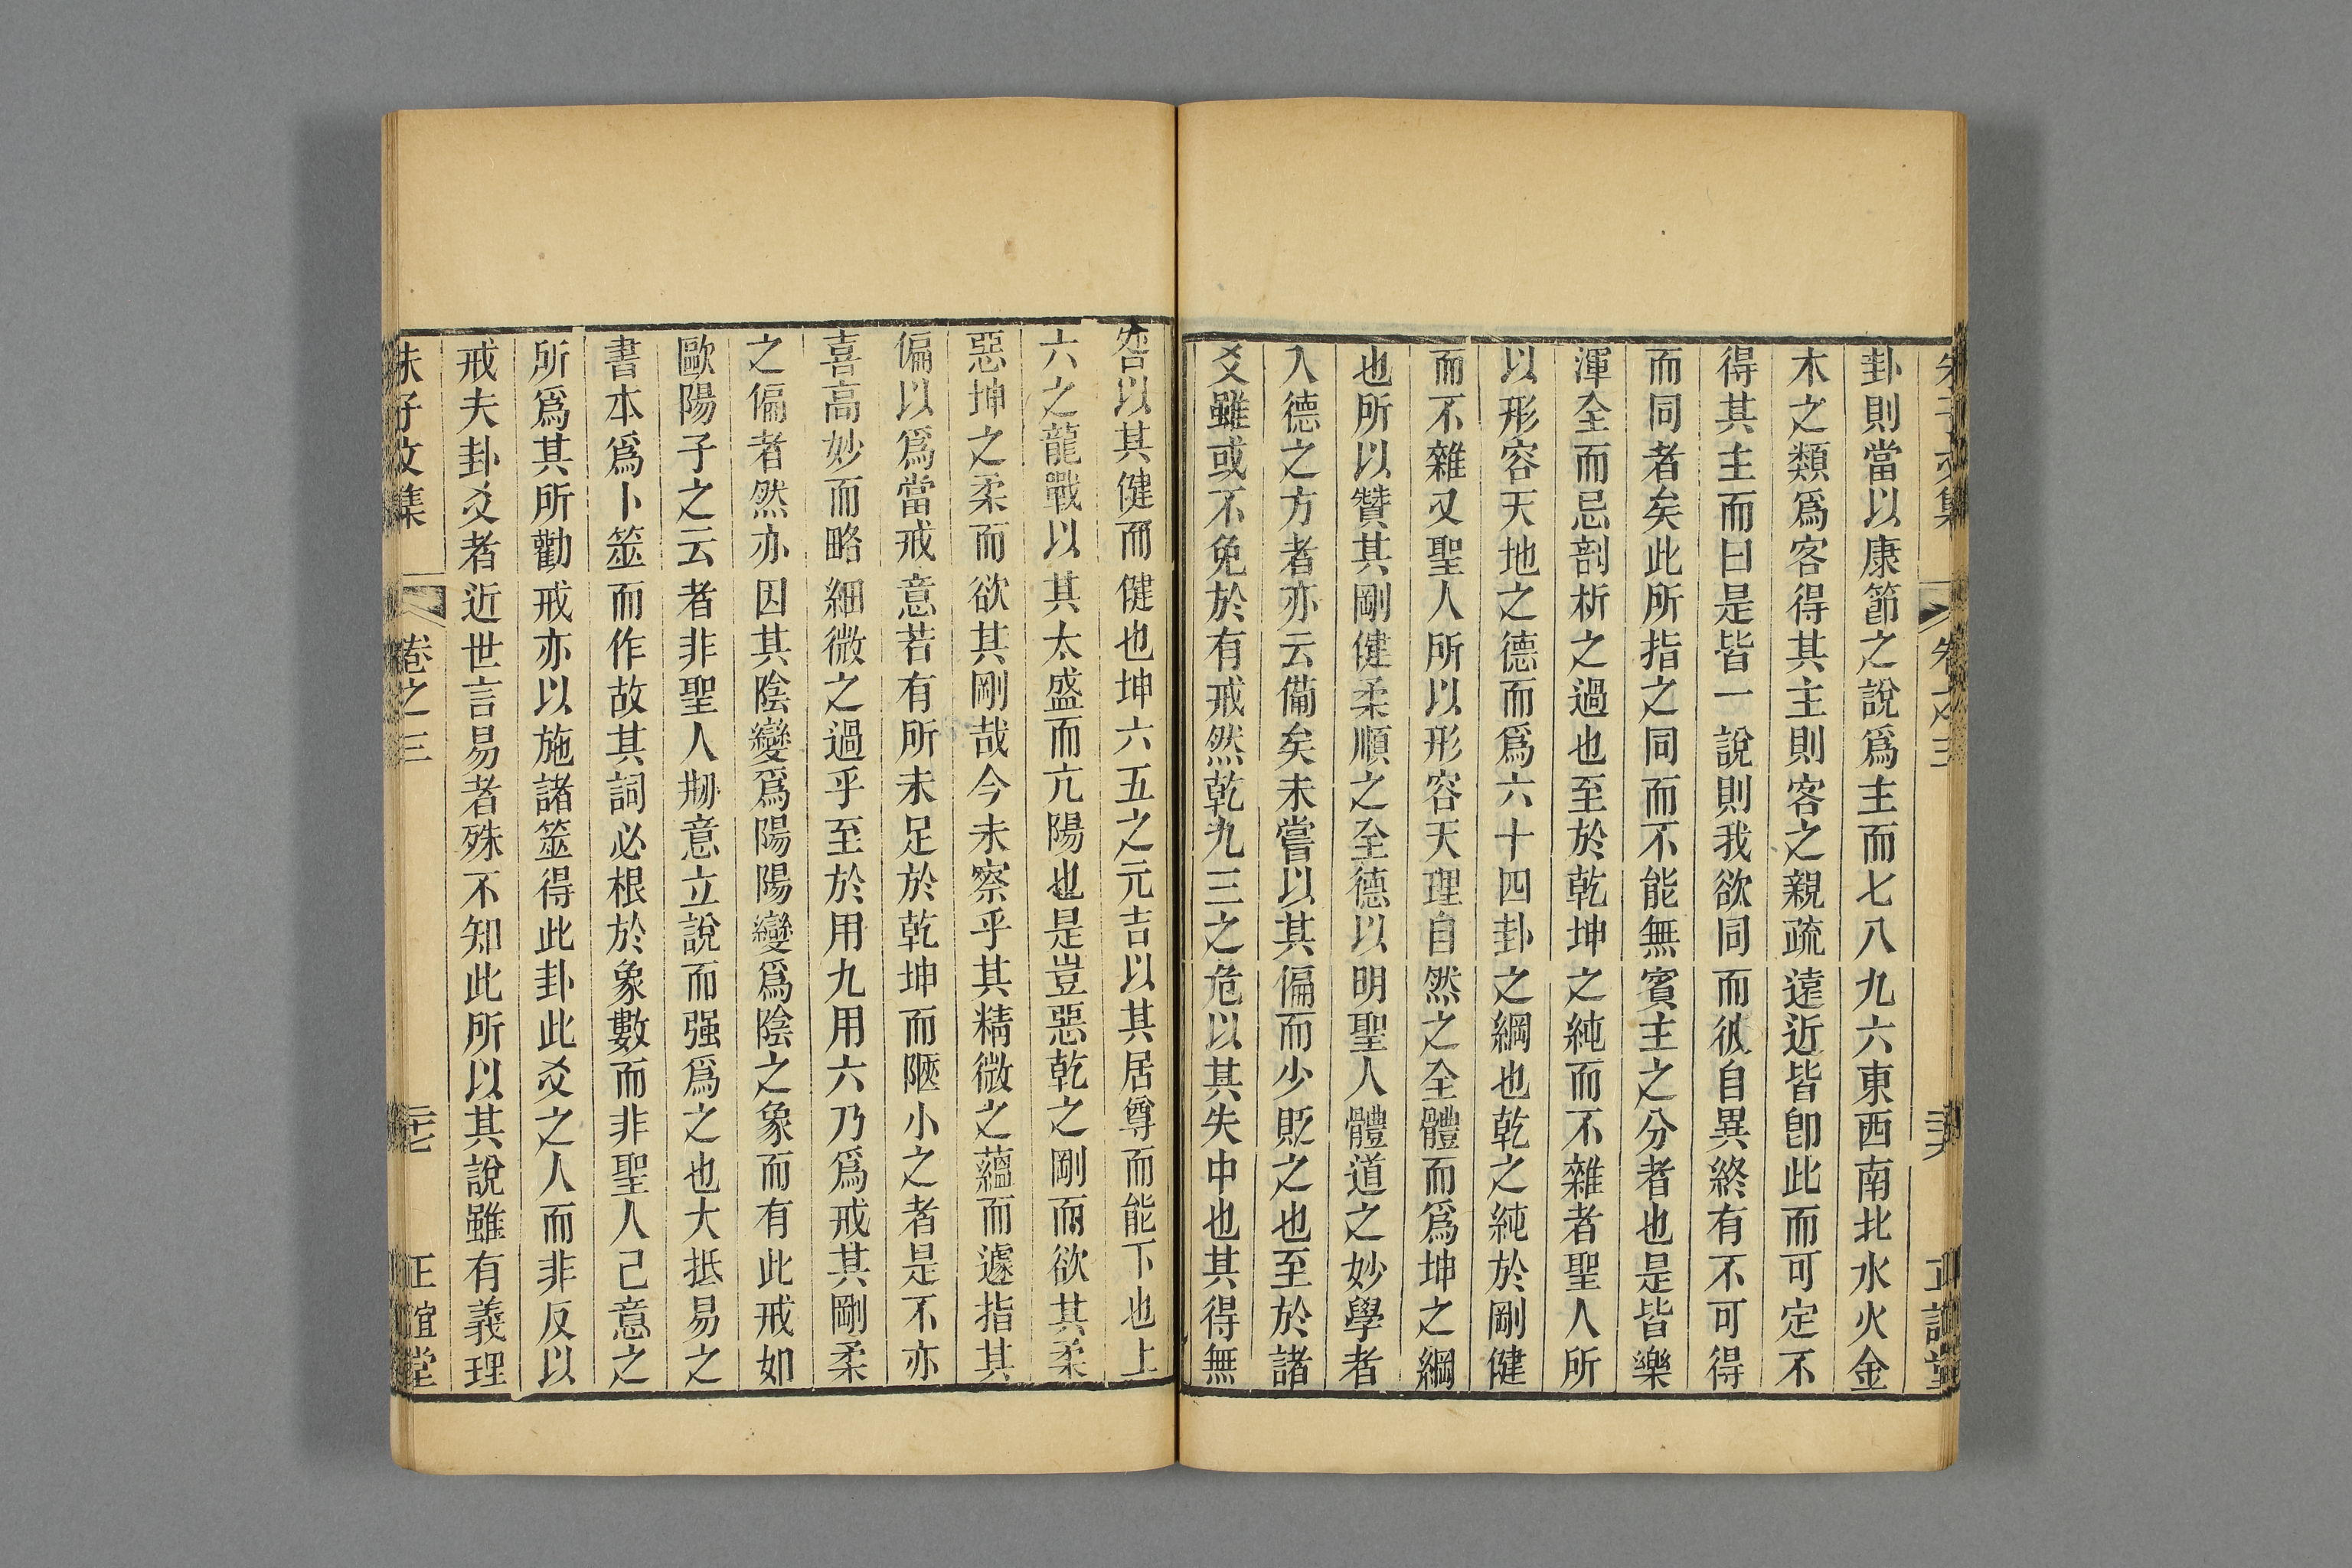 朱子文集 卷之三 正誼堂
卦則當以康節之說爲主而七八九六東西南北水火金
木之類爲客得其主則客之親疏遠近皆卽此而可定不
得其主而曰是皆一說則我欲同而彼自異終有不可得
而同者矣此所指之同而不能無賓主之分者也是皆樂
渾全而忌剖析之過也至於乾坤之純而不雜者聖人所
以形容天地之德而爲六十四卦之綱也乾之純於剛健
而不雜又聖人所以形容天理自然之全體而爲坤之綱
也所以贊其剛健柔順之至德以明聖人體道之妙學者
入德之方者亦云備矣未嘗以其偏而少貶之也至於諸
爻雖或不免於有戒然乾九三之危以其失中也其得無
咎以其健而健也坤六五之元吉以其居尊而能下也上
六之龍戰以其太盛而亢陽也是豈惡乾之剛而欲其柔
惡坤之柔而欲其剛哉今未察乎其精微之蘊而遽指其
偏以爲當戒意若有所未足於乾坤而陋小之者是不亦
喜高妙而略細微之過乎至於用九用六乃爲戒其剛柔
之偏者然亦因其陰變爲陽陽變爲陰之象而有此戒如
歐陽子之云者非聖人剏意立說而强爲之也大抵易之
書本爲卜筮而作故其詞必根於象數而非聖人己意之
所爲其所勸戒亦以施諸筮得此卦此爻之人而非反以
戒夫卦爻者近世言易者殊不知此所以其說雖有義理
朱子文集 卷之三 二十七 正誼堂